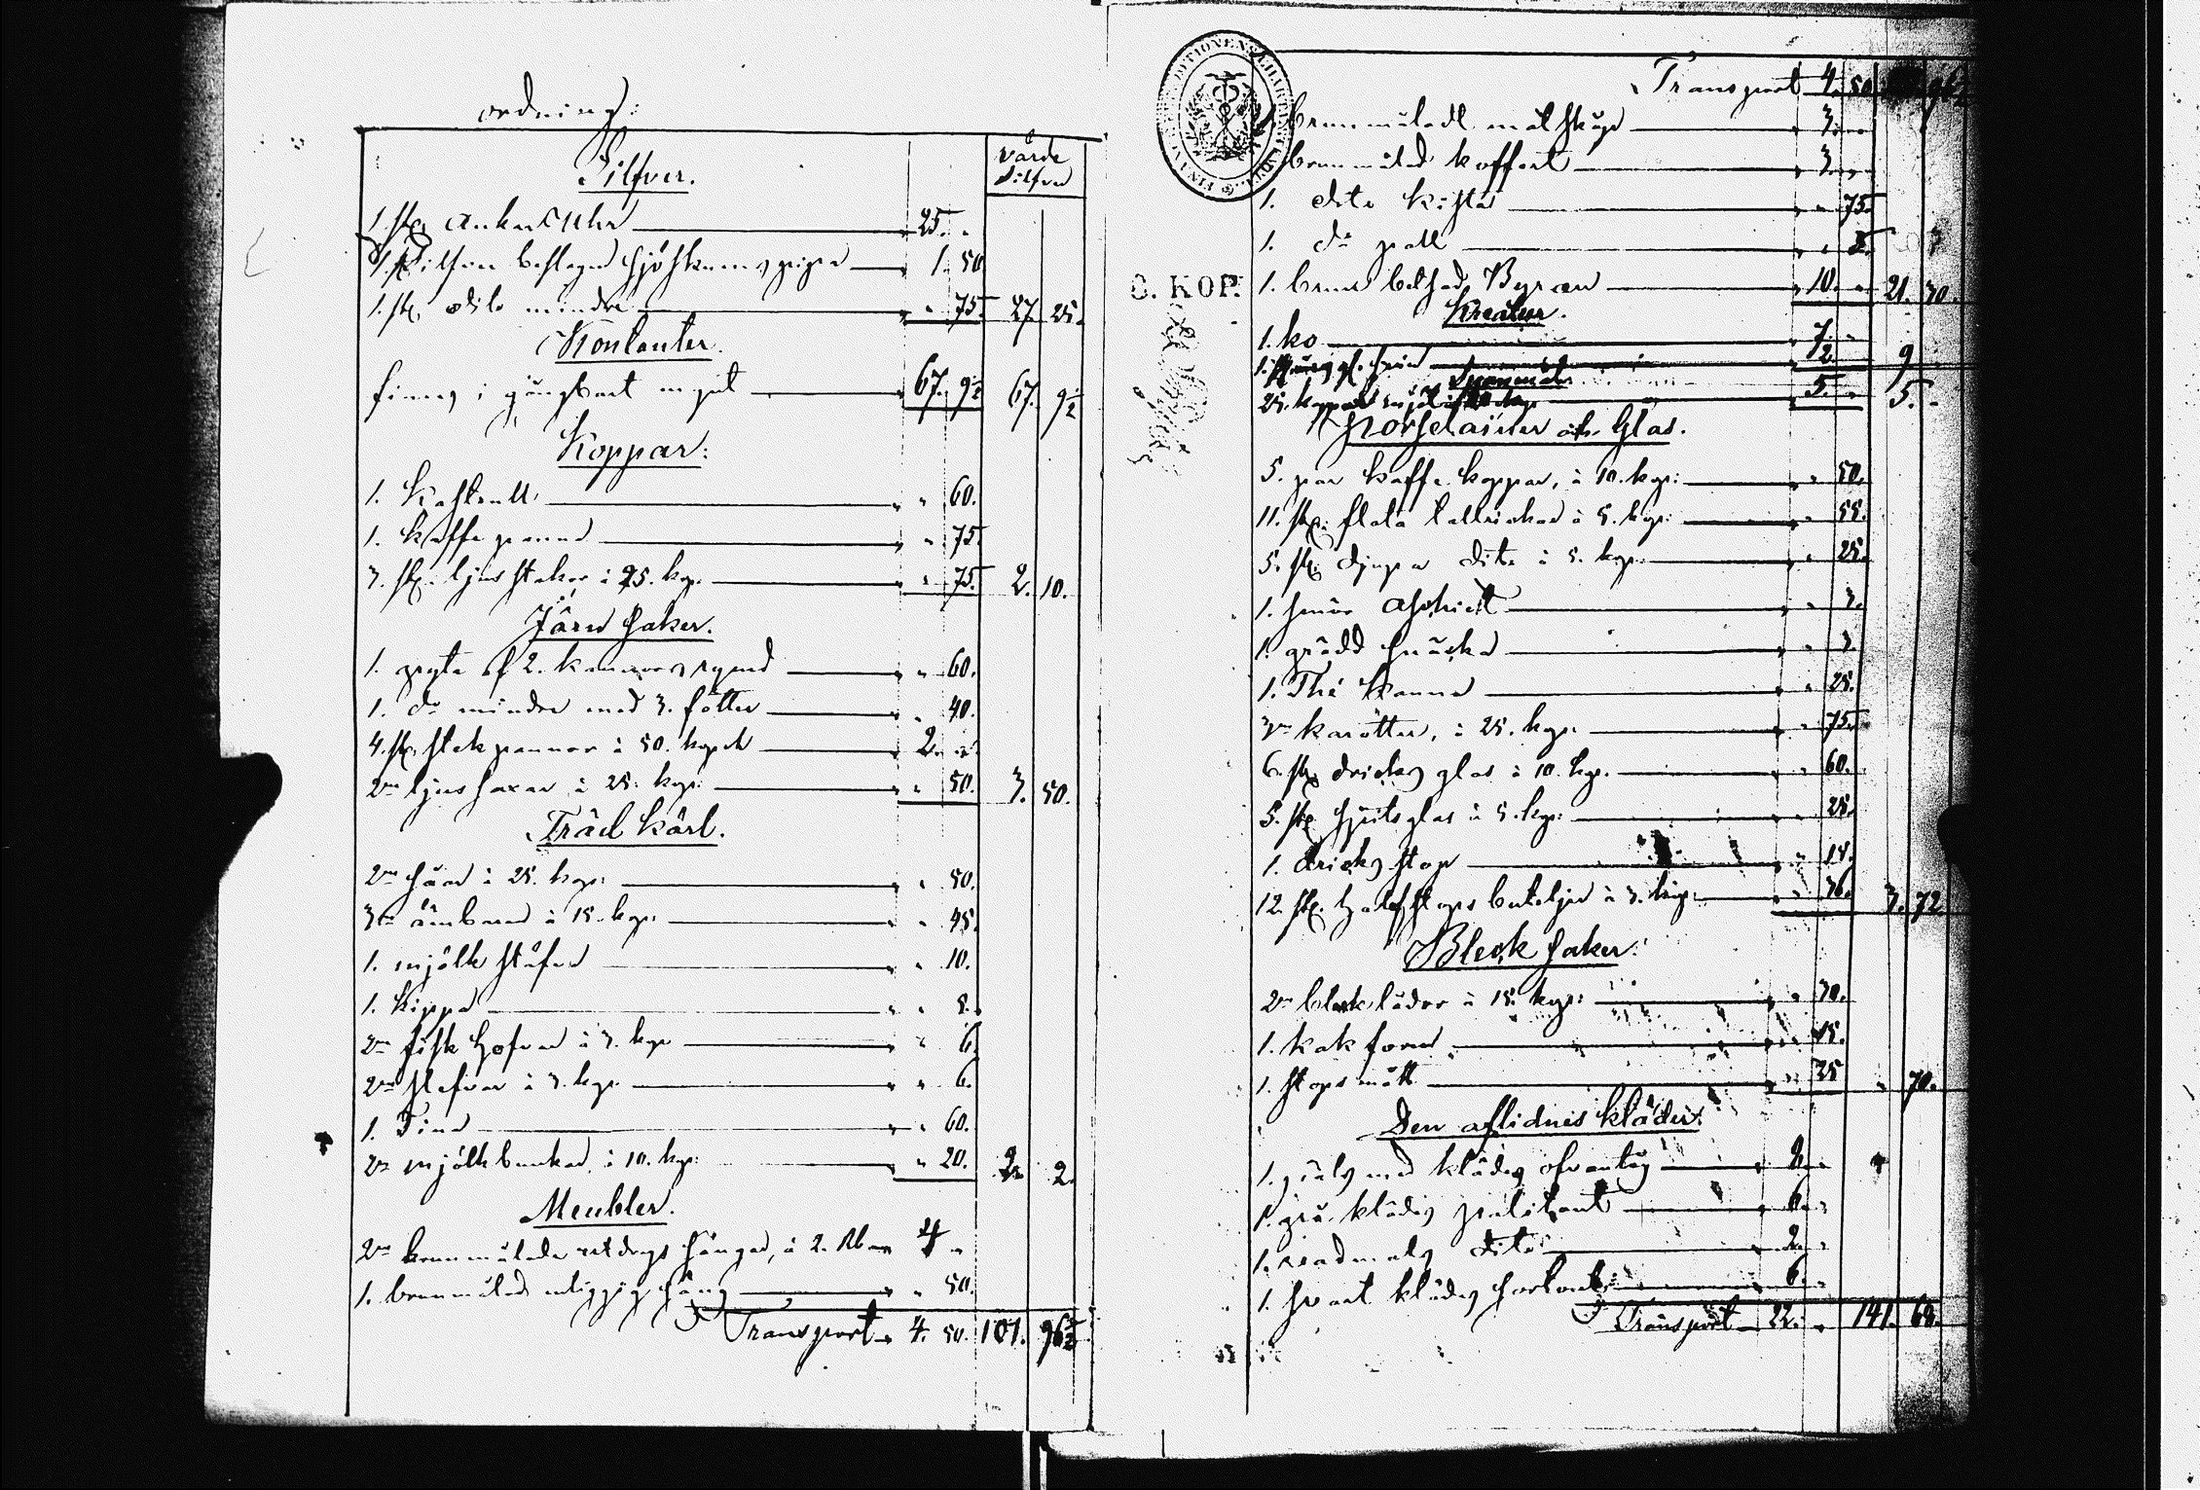 ordning:
värde
Silfver
Silfver.
1. st. ankar Uhr 25. "
1. st. silfver beslagen sjöskums pipa 1. 50
1. st. dito mindre " 75. 27. 25.
Kontanter.
finnes i gångbart mynt 67. 9½ 67. 9½
Koppar:
1. Kastrull " 60.
1. Kaffe panna " 75
3. st. ljus stakar à 25. kop. " 75. 2. 10.
Järn saker.
1. gryta af 2. kannors rymd " 60.
1. do mindre med 3. fötter " 40.
4. st. stekpannor à 50. kopek 2. "
2ne ljus saxar à 25. kop: " 50. 3. 50.
Träd kärl.
2ne såar à 25. kop: " 50.
3ne ämbaren à 15. kop: " 45.
1. mjölk stäfva " 10.
1. Kippa " 5.
2ne fisk à 3. kop " 6.
2ne stäfvor à 3. kop. " 6.
1. Tina " 60.
2ne mjölk bunkar à 10. kop: " 20. 2. 2.
Meubler.
2ne brunmålade utdrags sängar, à 2. Rub 4 "
1. brunmålad säng " 50.
Transport 4. 50. 101. 96½
Transport 4. 50 96½
1. brunmåladt matskåp 3. "
1. brunmålad koffert 3. "
1. dito kista " 75.
1. do pall " 5.
C. KOP.
1. brun betsad Byrån 10. " 21. 30.
Kreatur.
1. ko 7. "
2. 9
25. kappar 5. " 5. "
Porselainer och Glas.
5. par kaffe koppar, à 10. kop: " 50.
11. st. flata tallrickar à 5. kop: " 55.
5. st. djupa dito à 5. kop. " 25.
1. smör Aschiett " 3.
1. grädd snäcka " 3.
1. Thé kanna " 25.
3ne karotter, à 25. kop: " 75.
6. st. dricks glas à 10. kop. " 60.
5. st. spits glas à 5. kop: " 25.
1. dricks stop " 15.
12. st. halfstops buteljer à 3. kop: " 36. 3. 72
Bleck saker:
2ne bleck lådor à 15. kop: " 30.
1. kak form " 15.
1. stops mått " 25 " 70.
Den aflidnes kläder:
1. päls med klädes ofvantyg 8. "
1. grå klädes paletoat 6. "
1. vadmals dito 2. "
1. svart klädes 6. "
Transport 22. " 141. 68.